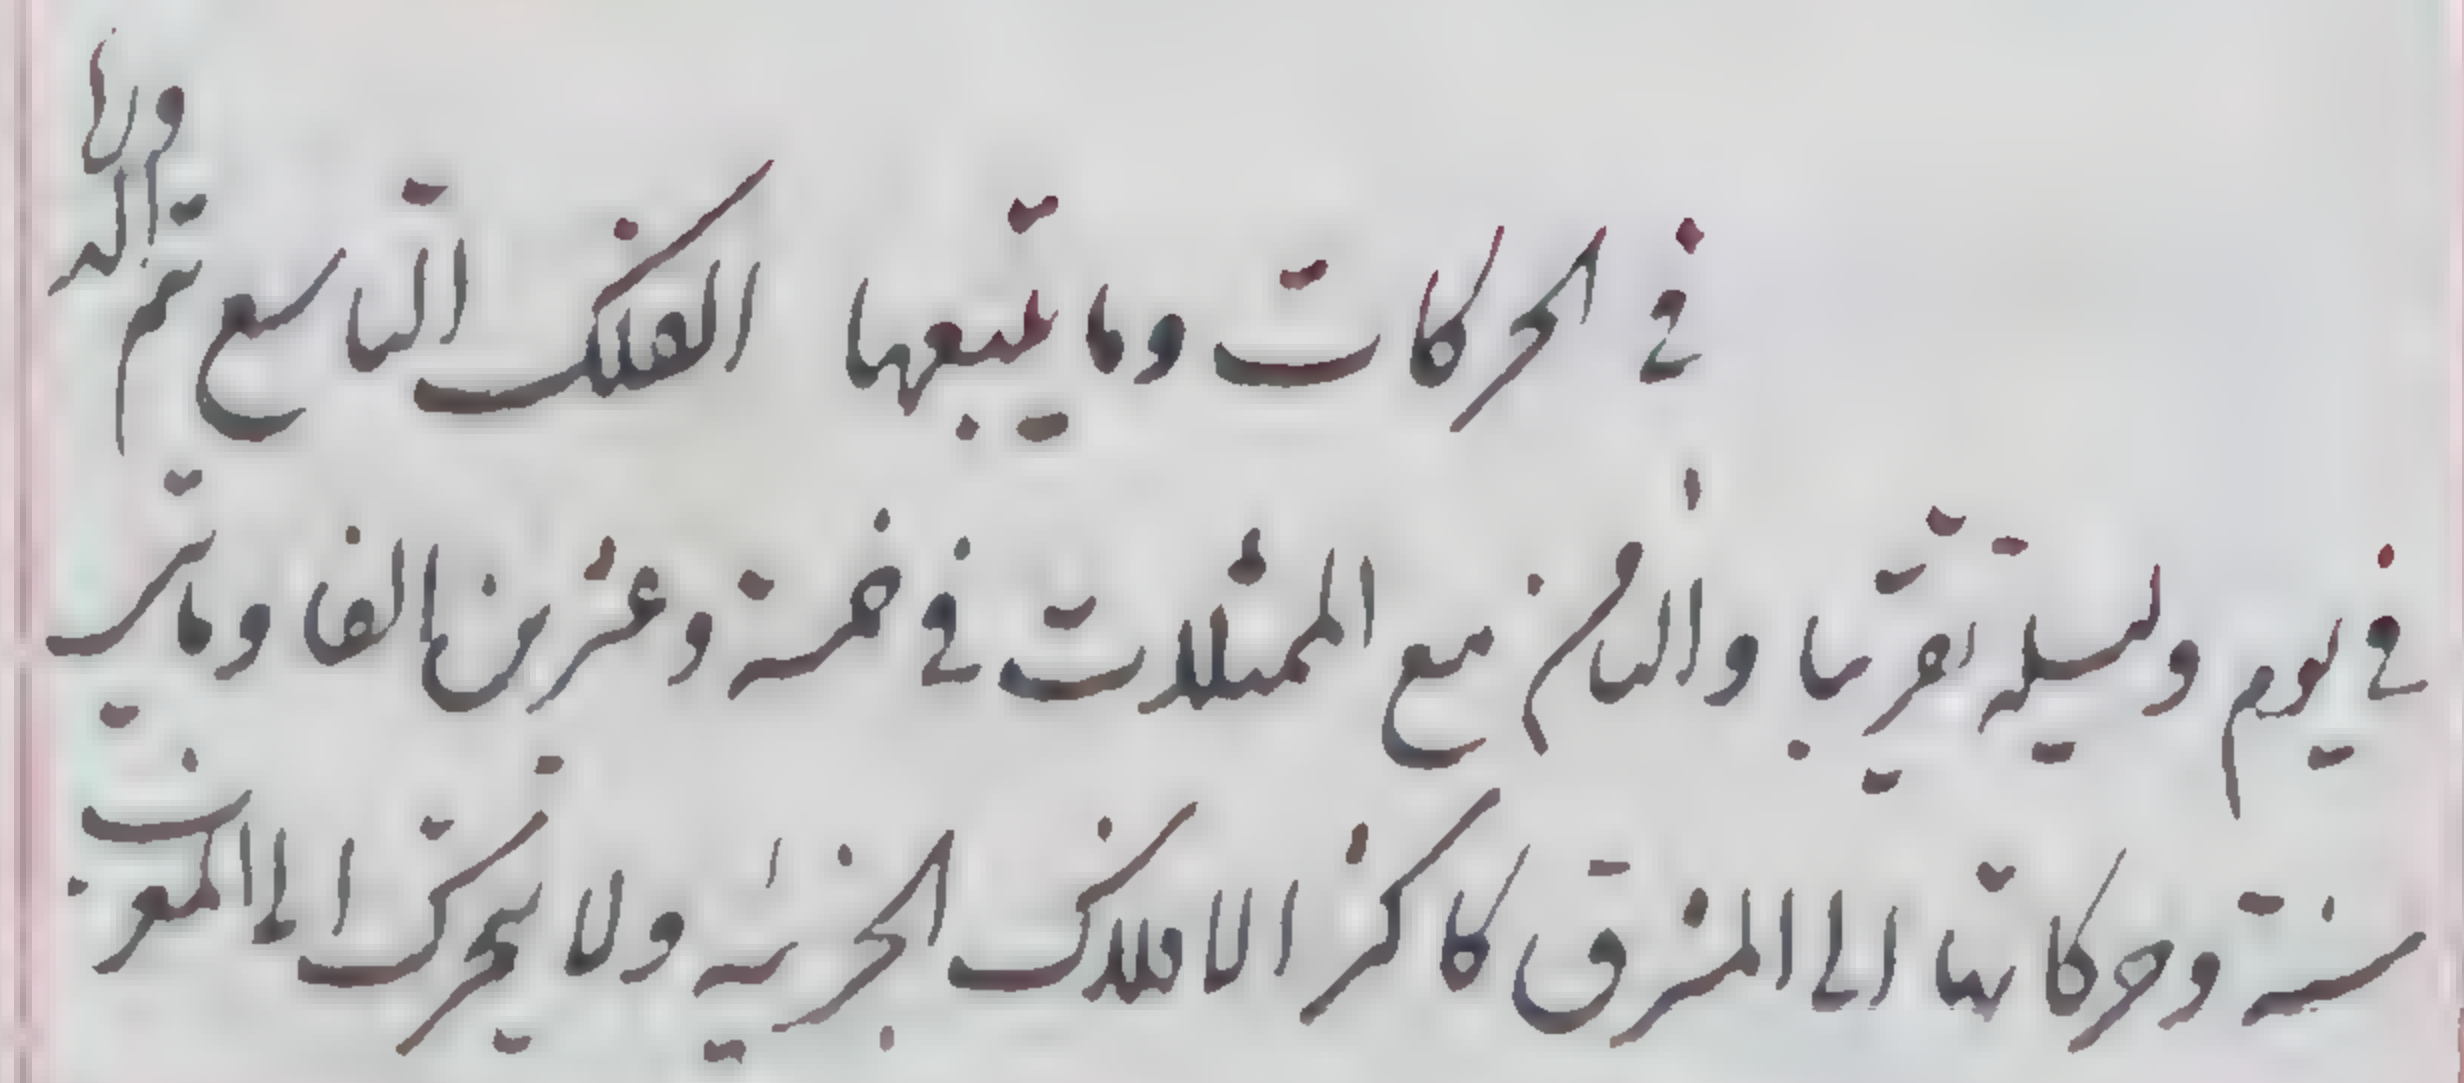 في الحركات وما يتبعها الفلك التاسع تتم دورا
في يوم وليلة تقريبا والثامن مع الممثلات في خمسة وعشرين الفا ومأتي
سنة وحركاتها الى المشرق كاكثر الافلاك الجزئية ولا يتحرك الى المغرب